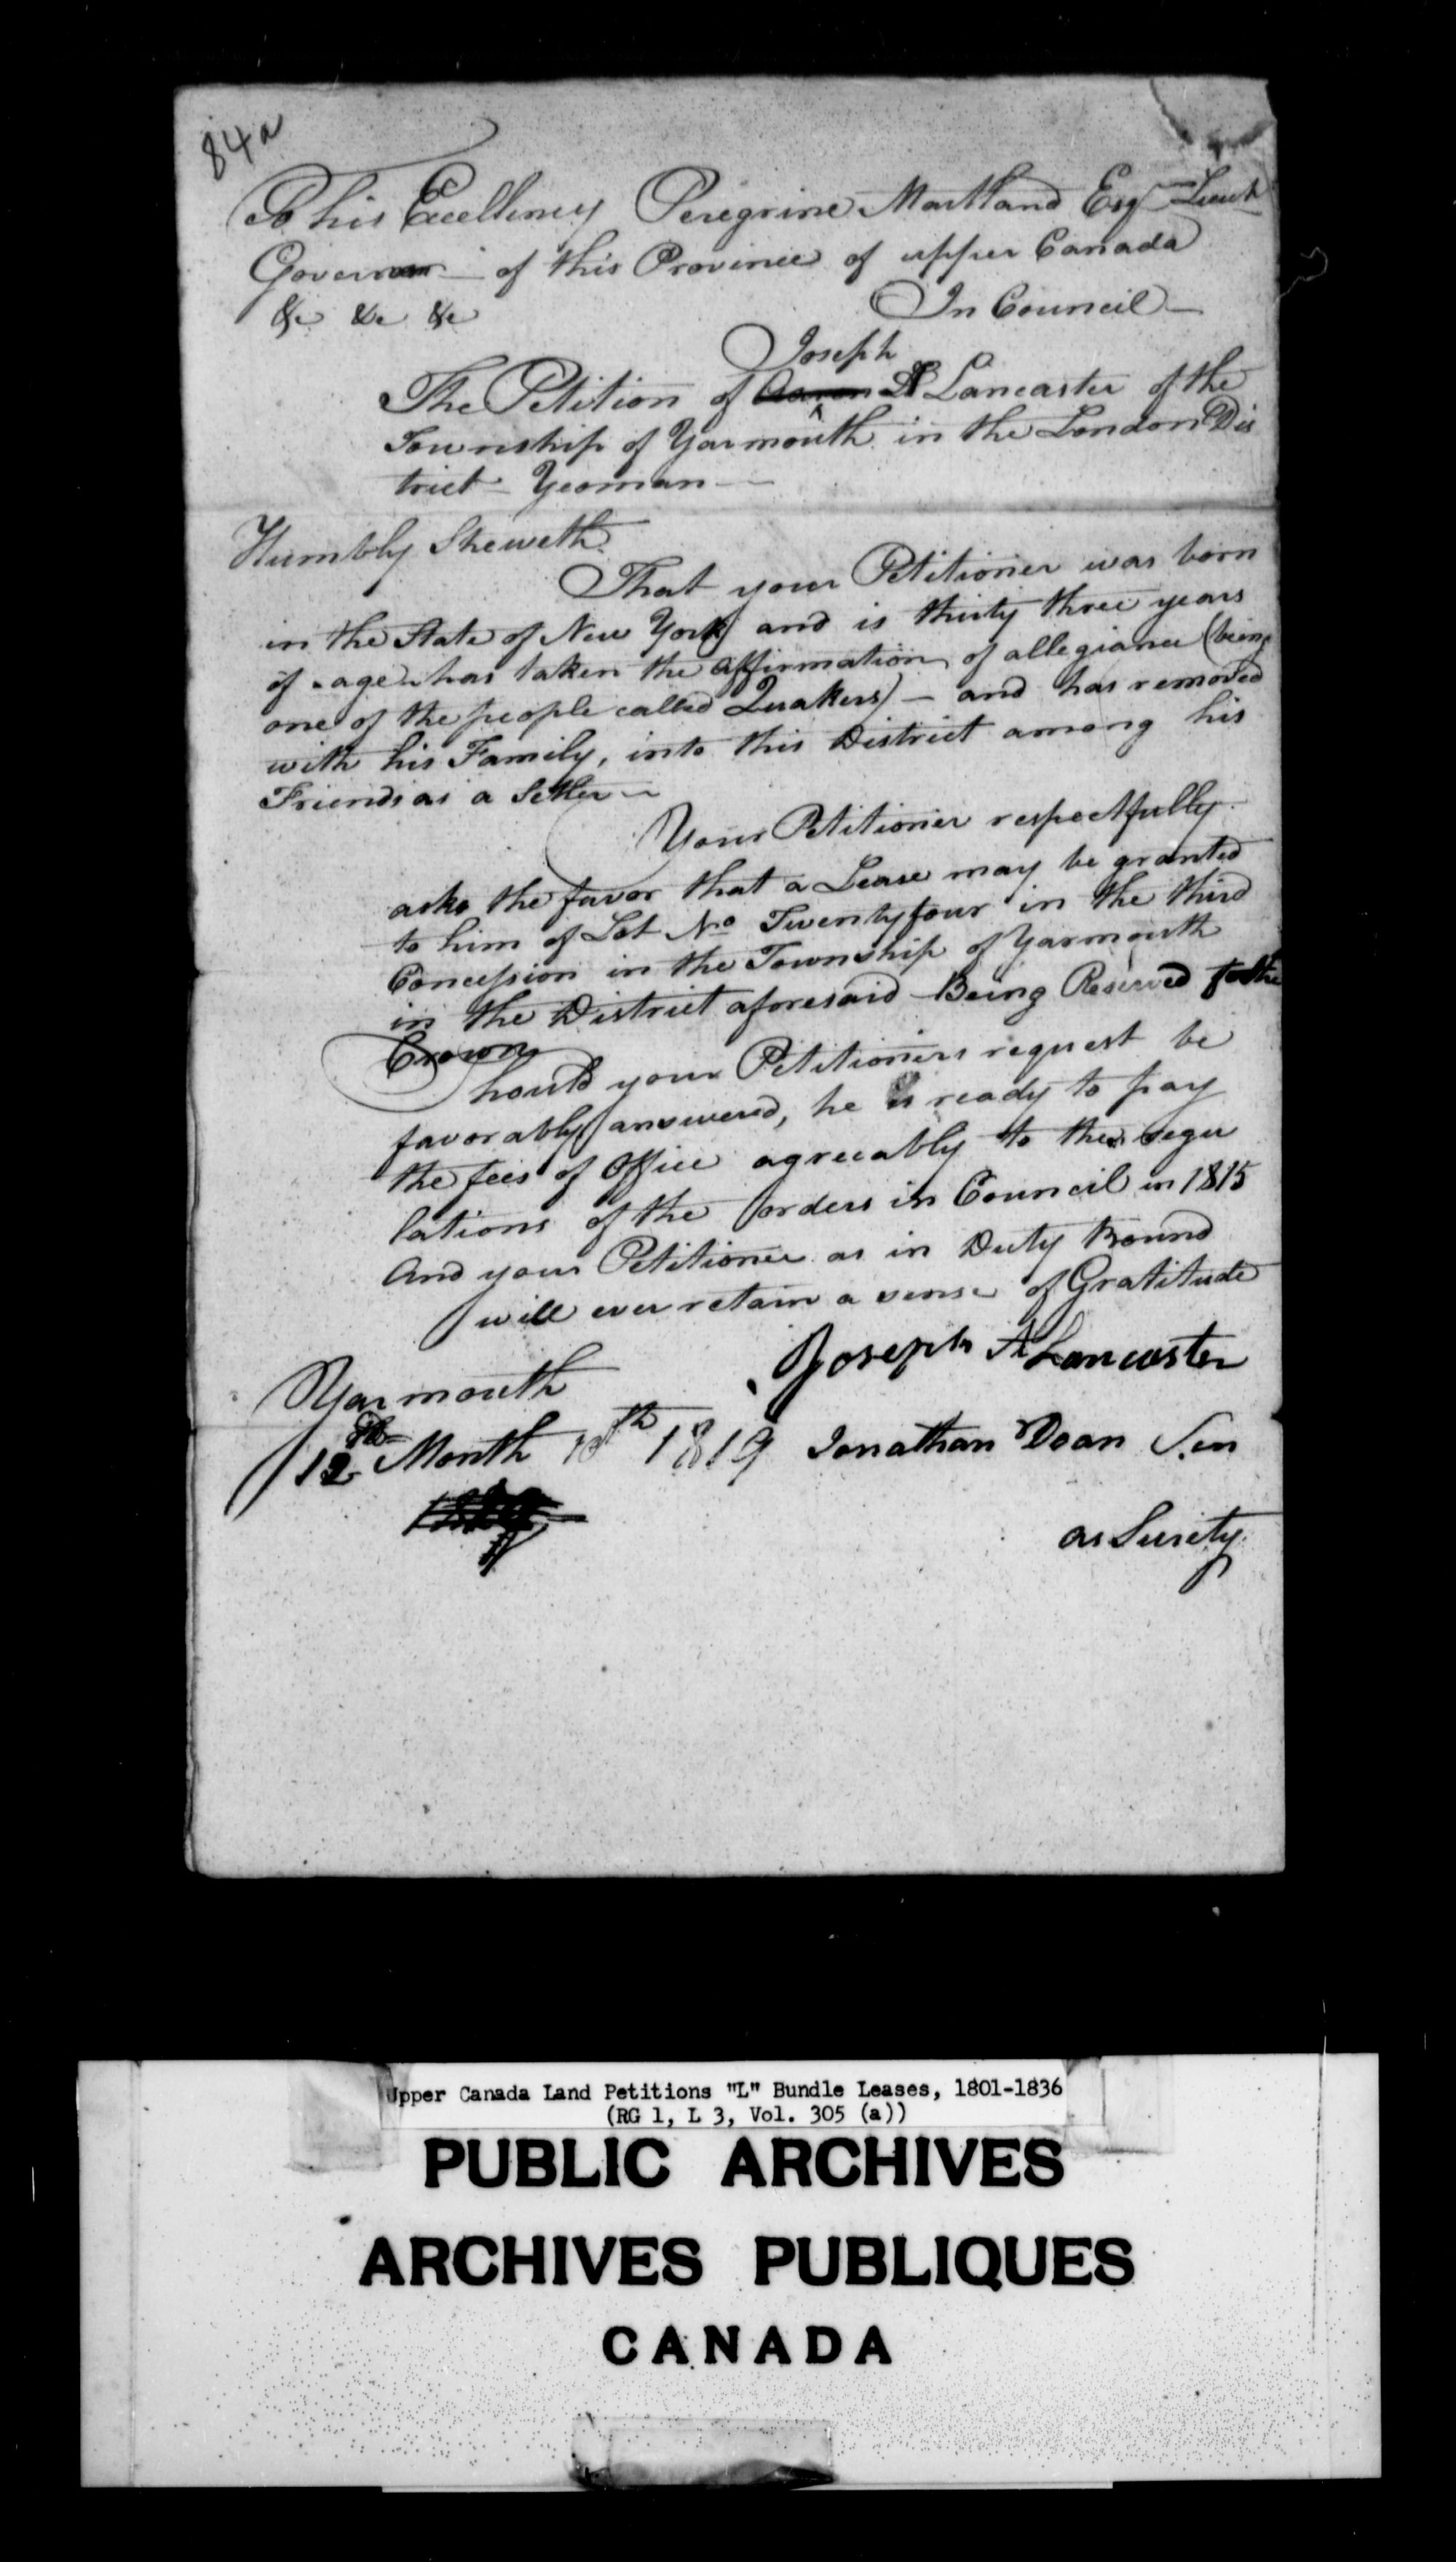 84a
To his Excellency Peregrine Maitland Esqr Lieut
Governor of this Province of upper Canada
&c &c &c In Council
Joseph
The Petition of Aaron A Lancaster of the
Township of Yarmouth in the London Dis
trict Yeoman
Humbly Sheweth
That your Petitioner was born
in the State of New York and is thirty three years
of age has taken the affirmation of allegiance (being
one of the people called Quakers) - and has removed
with his Family, into this District among his
Friends as a Setler
Your Petitioner respectfully
asks the favor that a Lease may be granted
to him of Lot No Twenty four in the third
Concession in the Township of Yarmouth
in the District aforesaid Being Reserved for the
Crown
Should your Petitioners request be
favorably answered, he is ready to pay
the fees of Office agreeably to the regu
lations of the orders in Council in 1815
And your Petitioner as in Duty Bound
will ever retain a sense of Gratitude
Joseph A Lancaster
Yarmouth
12th Month 10th 1819 Jonathan Doan Sen
as Surity
Upper Canada Land Petitions "L" Bundle Leases, 1801-1836
(RG 1, L 3, Vol. 305 (a))
PUBLIC ARCHIVES
ARCHIVES PUBLIQUES
CANADA